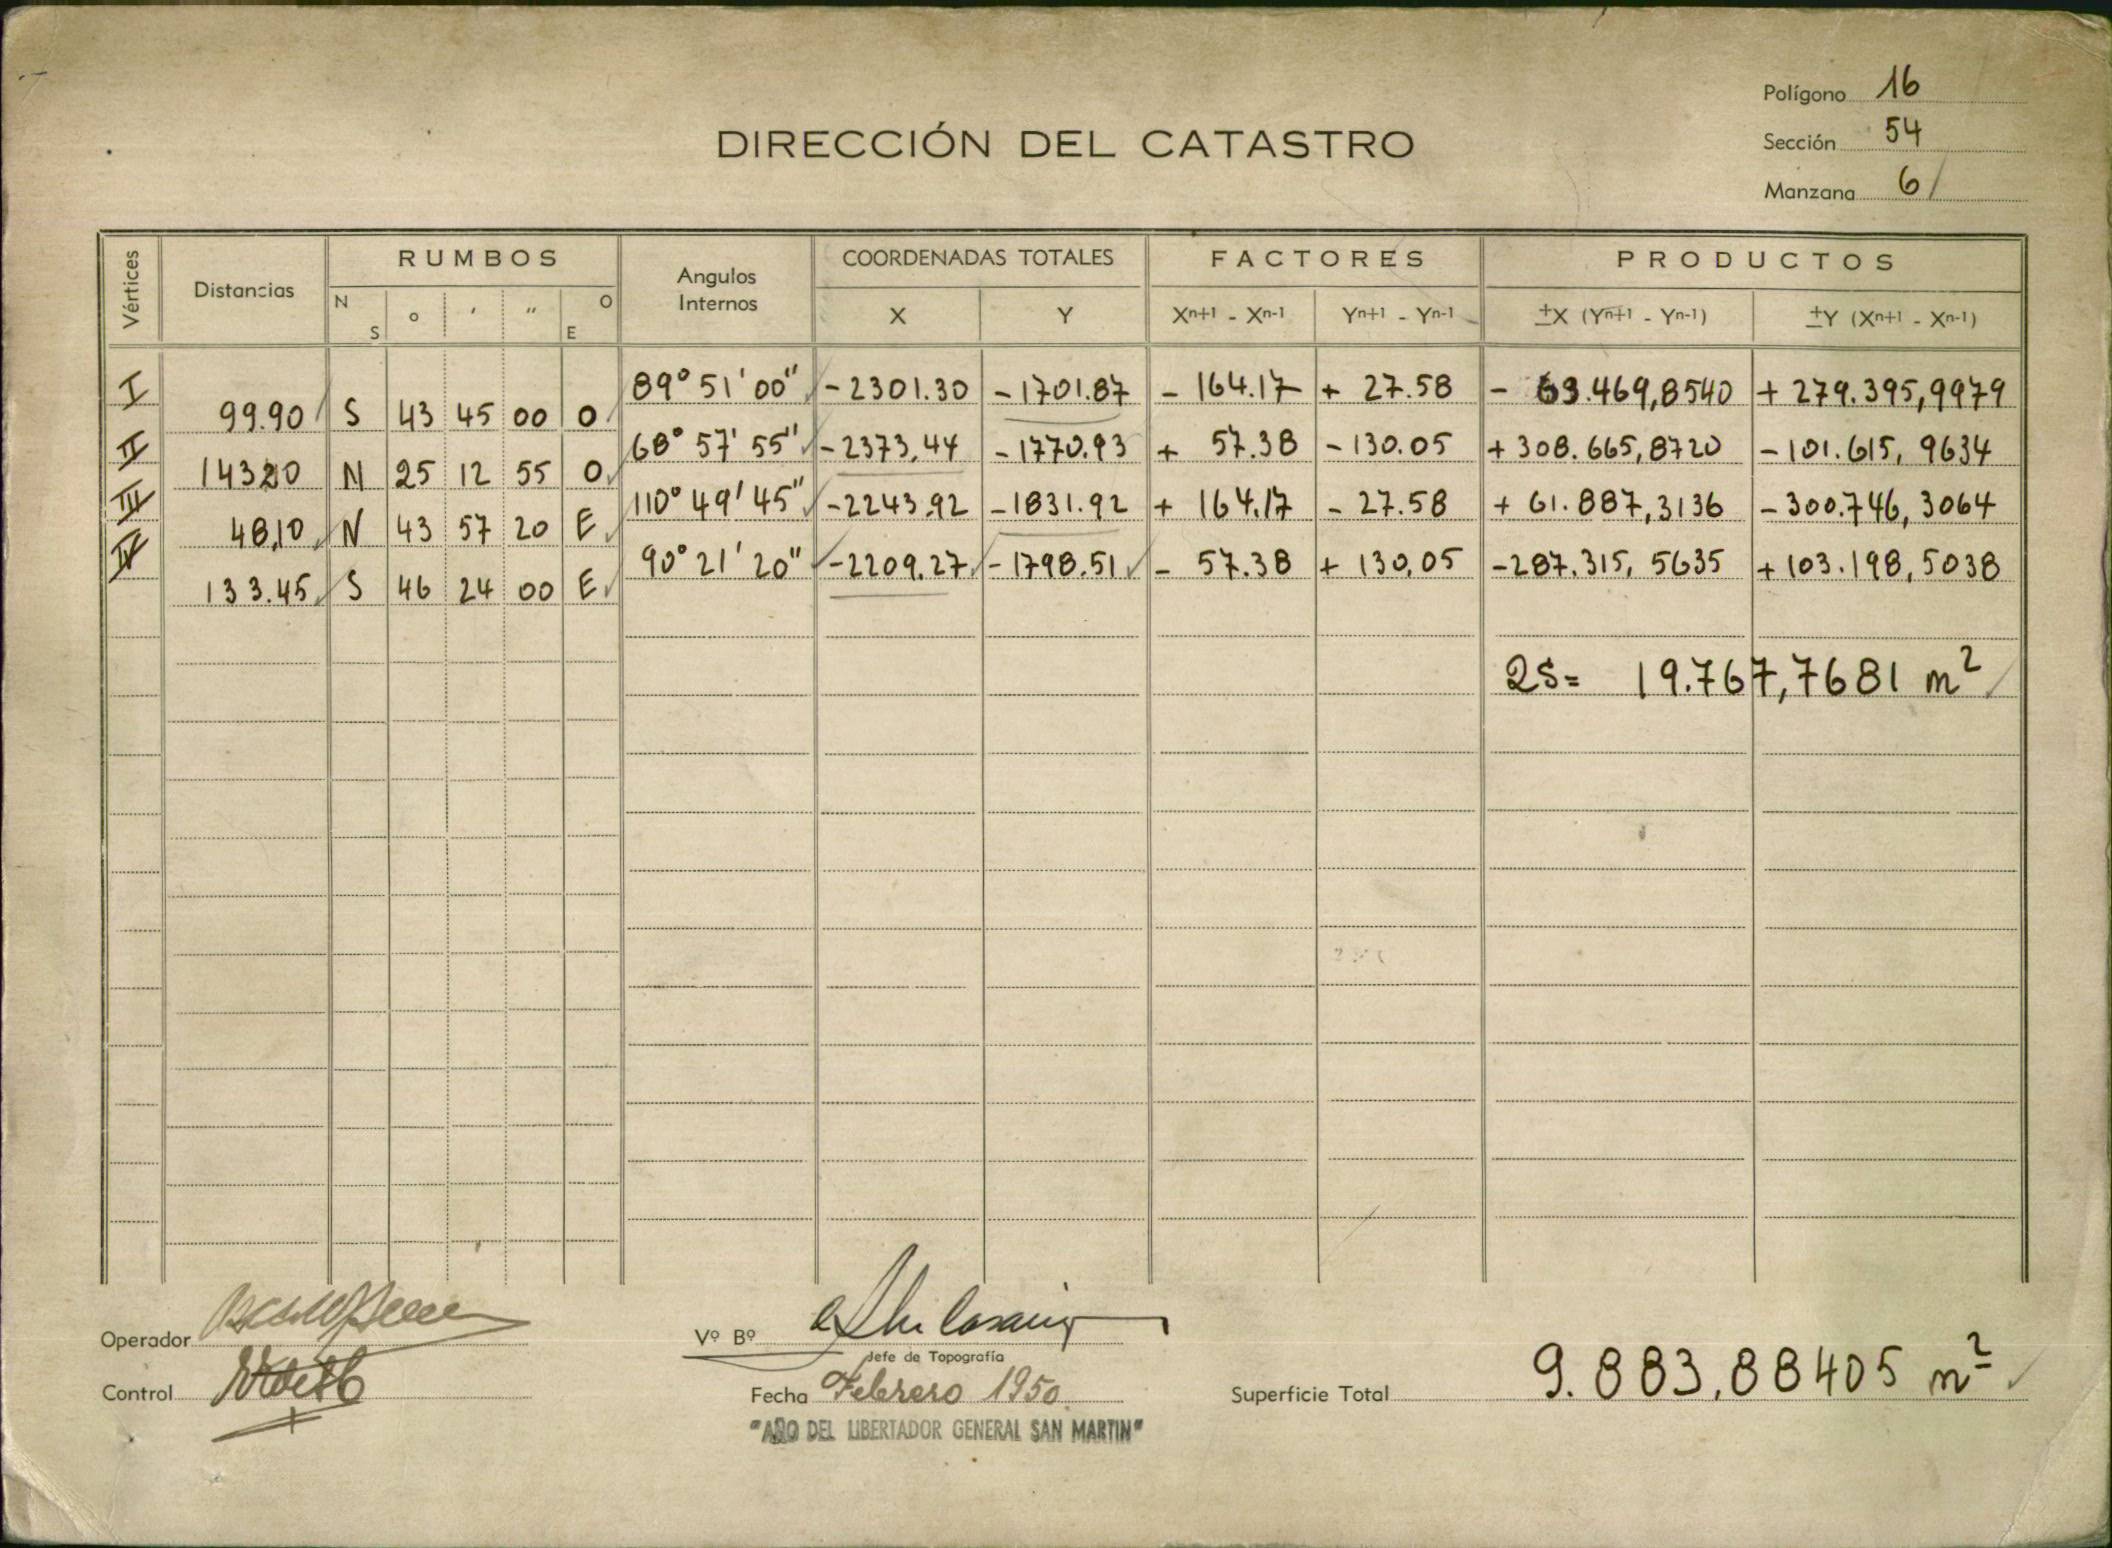 Polígono 16
DIRECCIÓN DEL CATASTRO
Sección 54
Manzana 6
Vértices
Distancias
RUMBOS
N S o ′ ″ O E
Angulos Internos
COORDENADAS TOTALES
X Y
FACTORES
Xn+1 - Xn-1 Yn+1 - Yn-1
PRODUCTOS
±X (Yn+1 - Yn-1) ±Y (Xn+1 - Xn-1)
I 89° 51′ 00″ -2301.30 -1701.87 - 164.17 + 27.58 - 63.469,8540 + 279.395,9979
99.90 S 43 45 00 O
II 68° 57′ 55″ -2373,44 -1770.93 + 57.38 -130.05 +308.665,8720 -101.615, 9634
14320 N 25 12 55 O
III 110° 49′ 45″ -2243.92 -1831.92 + 164.17 - 27.58 + 61.887,3136 -300.746, 3064
48,10 N 43 57 20 E
IV 90° 21′ 20″ -2209.27 -1798.51 - 57.38 + 130,05 -287.315, 5635 +103.198,5038
133.45 S 46 24 00 E
2S= 19.767,7681 m²
Operador
Vº Bº
Jefe de Topografía
Control
Fecha Febrero 1950
Superficie Total 9.883,88405 m²
"AÑO DEL LIBERTADOR GENERAL SAN MARTIN"